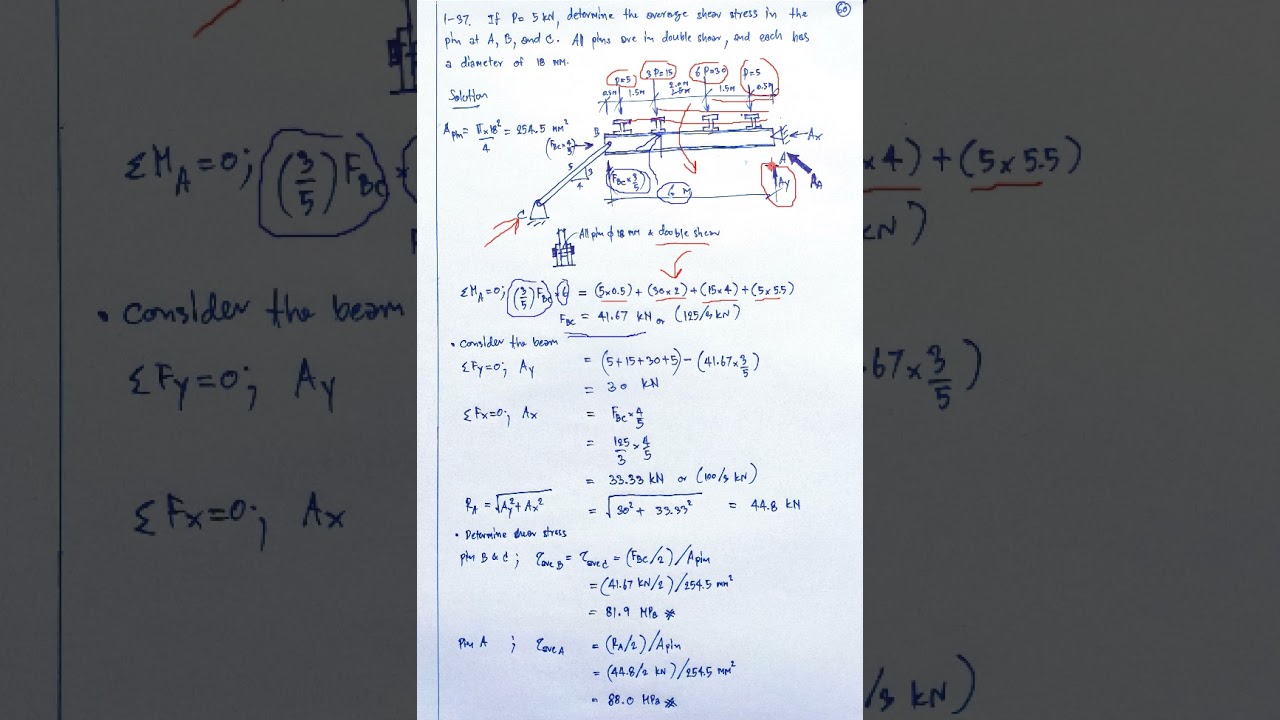 60
1-37. If P= 5 kN, determine the average shear stress in the
pin at A, B, and C. All pins are in double shear, and each has
a diameter of 18 mm.
Solution
P=5 3P=15 6P=30 P=5
0.5m 1.5m 2.0m 1.5m 0.5m
A pin = π×18²/4 = 254.5 mm²
B
(FBC×4/5)
Ax
5 3
4
FBC×3/5
6 M
A
Ay
RA
C
All pin ϕ 18 mm & double shear
ΣMA=0; (3/5)FBC×6 = (5×0.5)+(30×2)+(15×4)+(5×5.5)
FBC = 41.67 kN or (125/3 kN)
• consider the beam
ΣFy=0; Ay = (5+15+30+5)-(41.67×3/5)
= 30 kN
ΣFx=0; Ax = FBC×4/5
= 125/3 × 4/5
= 33.33 kN or (100/3 kN)
RA = √Ay²+Ax² = √30²+ 33.33² = 44.8 kN
• Determine shear stress
pin B & C ; τave B = τave C = (FBC/2)/Apin
= (41.67 kN/2)/254.5 mm²
= 81.9 MPa *
pin A ; τave A = (RA/2)/Apin
= (44.8/2 kN)/254.5 mm²
= 88.0 MPa *
ΣMA=0; (3/5)FBC
×4)+(5×5.5)
kN)
• consider the beam
ΣFy=0; Ay
.67×3/5)
ΣFx=0; Ax
/3 kN)